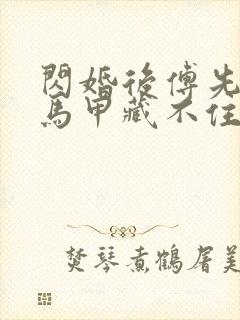 閃婚後傅先
馬甲藏不住
焚琴煮鶴屠美